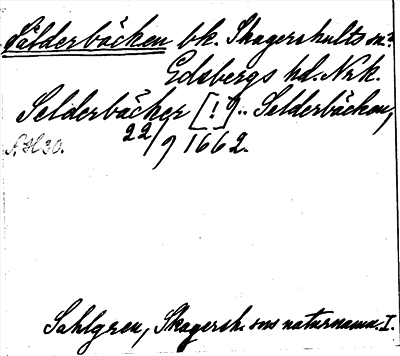 Sälderbäcken bk. Skagershults sn?
Edsbergs hd. Nrk.
Selderbäcker [!].. Selderbäcken,
22/9 1662.
N H 30.
Sahlgren, Skagersh. sns naturnamn. I.